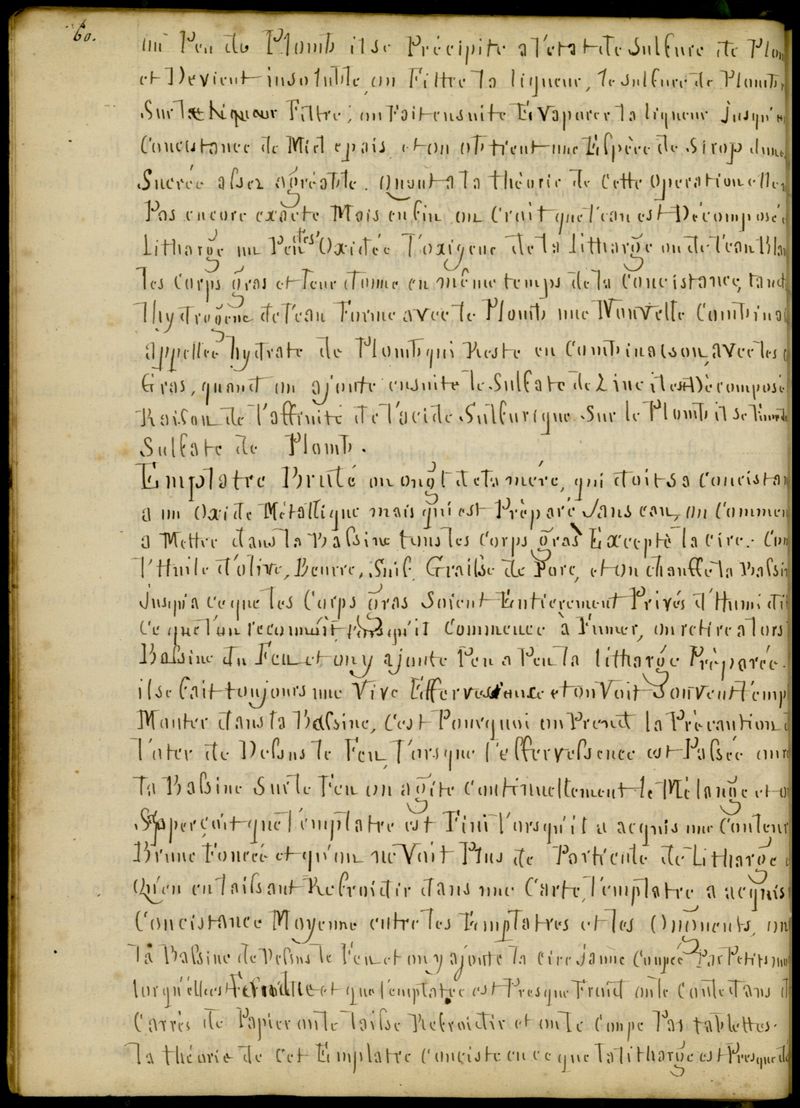 60.
un Peu de Plomb il se Précipite a l'etat de Sulfure de Plom
et Devient insoluble, on Filtre la liqueur, le Sulfure de Plomb,
Sur le Filtre; on Fait ensuite Evaporer la liqueur jusqu'a
Concistance de Miel epais, et on obtient une Espèce de Sirop d'une
Sucrée assez agréable. Quant a la théorie de Cette Operation elle
Pas encore exacte Mais enfin on Crait que l'eau est Décomposé
Litharge un Peu des Oxidée l'oxigene de la litharge ou de l'eau Bla
les Corps gras et leur donne en même temps de la Concistance, tand
l'hydrogene de l'eau Forme avec le Plomb une Nouvelle Combina
appellée hydrate de Plomb qui Reste en Combinaison avec les C
Gras, quand on ajoute ensuite le Sulfate de Zinc il est Décomposé
Raison de l'affinité de l'acide Sulfurique Sur le Plomb il se
Sulfate de Plomb.
Emplatre Brulé ou ongt de la mère, qui doit sa Concistan
a un Oxide Métallique mais qui est Préparé Sans eau, on Commen
a Mettre dans la Bassine tous les Corps gras Excepté la Cire. Com
l'Huile d'olive, Beurre, Suif, Graisse de Porc, et on chauffe la Bassin
Jusqu'a ce que les Corps gras Soient Entierement Privés d'Humidit
Ce que l'on reconnait lors qu'il Commence à Fumer, on retire alors
Bassine du Feu et on y ajoute Peu a Peu la litharge Préparée.
il se fait toujours une Vive Effervessence et on Voit Souvent l'emp
Monter dans la Bassine, C'est Pourquoi on Prend la Précaution d
l'oter de Dessus le Feu, lorsque l'effervessence est Passée on re
la Bassine Sur le Feu on agite Continuellement le Mélange et o
S'apperçoit que l'emplatre est Fini lorsqu'il a acquis une Couleur
Brune Foncée et qu'on ne Voit Plus de Particule de Litharge e
Qu'en en laissant Refroidir dans une Carte, l'emplatre a acquis
Concistance Moyenne entre les Emplatres et les Onguents, on
la Bassine de Dessus le Feu et on y ajoute la Cire Jaune Coupée Par Petits mo
lorqu'elle est et que l'emplatre est Presque Froid on le Coule dans d
Carrés de Papier on le laisse Refroidir et on le Coupe Par tablettes.
la théorie de Cet Emplatre Conciste en ce que la litharge est Presque de